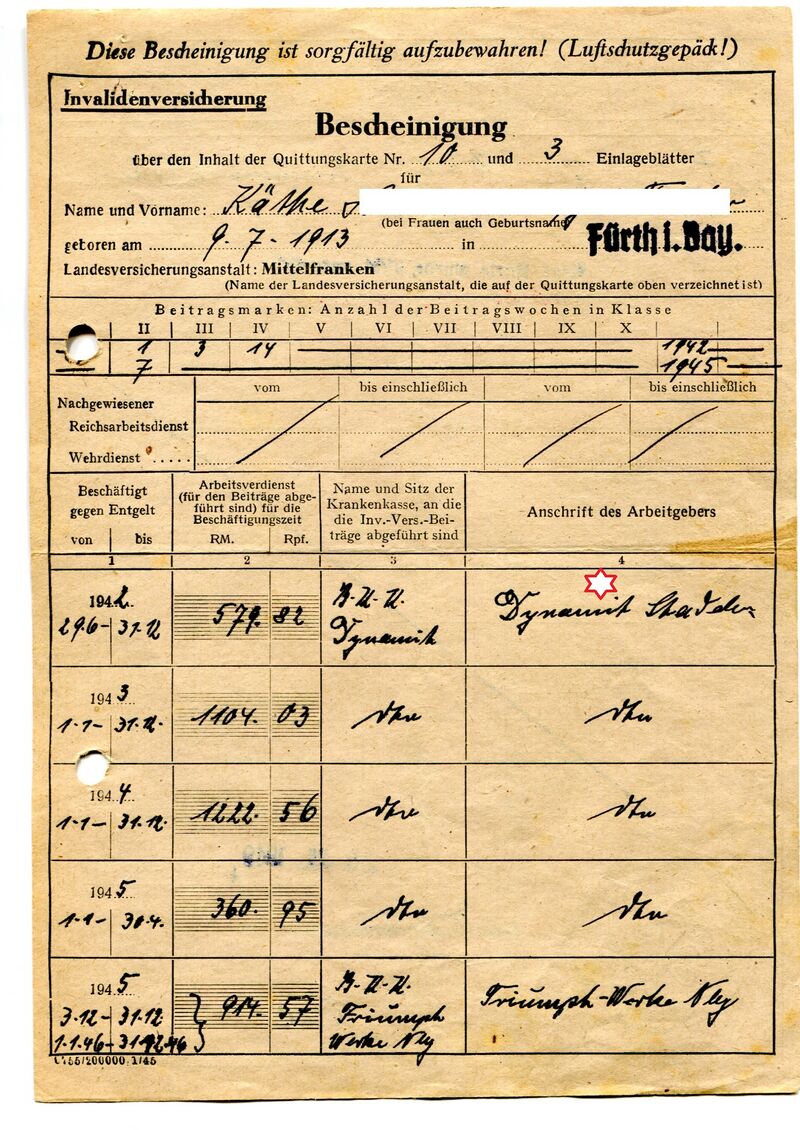 Diese Bescheinigung ist sorgfältig aufzubewahren! (Luftschutzgepäck!)
Invalidenversicherung
Bescheinigung
über den Inhalt der Quittungskarte Nr. 10 und 3 Einlageblätter
für
Name und Vorname: Käthe
(bei Frauen auch Geburtsname)
geboren am 9.-7-1913 in Fürth i. Bay.
Landesversicherungsanstalt: Mittelfranken
(Name der Landesversicherungsanstalt, die auf der Quittungskarte oben verzeichnet ist)
Beitragsmarken: Anzahl der Beitragswochen in Klasse
II III IV V VI VII VIII IX X
1 3 14 1942
7 1945
vom bis einschließlich vom bis einschließlich
Nachgewiesener
Reichsarbeitsdienst
Wehrdienst .....
Beschäftigt gegen Entgelt
von bis
Arbeitsverdienst
(für den Beiträge abge-
führt sind) für die
Beschäftigungszeit
RM. Rpf.
Name und Sitz der
Krankenkasse, an die
die Inv.-Vers.-Bei-
träge abgeführt sind
Anschrift des Arbeitgebers
1 2 3 4
1942
29.6- 31.12 579. 82 B.-K.-K. Dynamit Dynamit Stadeln
1943
1-1- 31.12. 1104. 03 dto dto
1944
1-1- 31.12. 1222. 56 dto dto
1945
1-1- 30.4. 360. 95 dto dto
1945
3.12- 31.12
1.1.46- 31.12.46 914. 57 B.-K.-K. Triumph Werke Nbg Triumph-Werke Nbg
200000 1/45